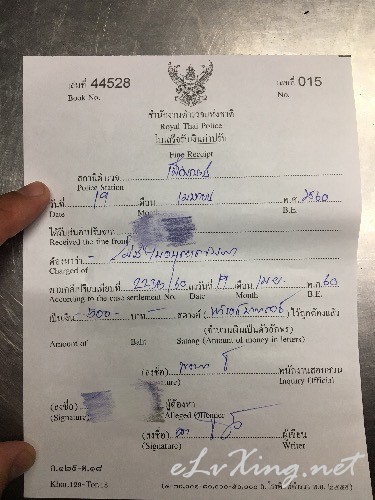 เล่มที่ 44528 เลขที่ 015
Book No. No.
สำนักงานตำรวจแห่งชาติ
Royal Thai Police
ใบเสร็จรับเงินค่าปรับ
Fine Receipt
สถานีตำรวจ
Police Station
วันที่ 19 เดือน เมษายน พ.ศ. 2560
Date Month B.E.
ได้รับเงินค่าปรับจาก
Received the fine from
ต้องหาว่า
Charged of
ตามคดีเปรียบเทียบที่ /60 ลงวันที่ 19 เดือน เม.ย. พ.ศ. 60
According to the case settlement No. Date Month B.E.
เป็นเงิน -500- บาท - สตางค์ ( ) ไว้ถูกต้องแล้ว
(จำนวนเงินเป็นตัวอักษร)
Amount of Baht Satang (Amount of money in letters)
(ลงชื่อ) พนักงานสอบสวน
(Signature) Inquiry Official
(ลงชื่อ) ผู้ต้องหา
(Signature) Alleged Offender
(ลงชื่อ) ผู้เขียน
(Signature) Writer
eLvXing.net